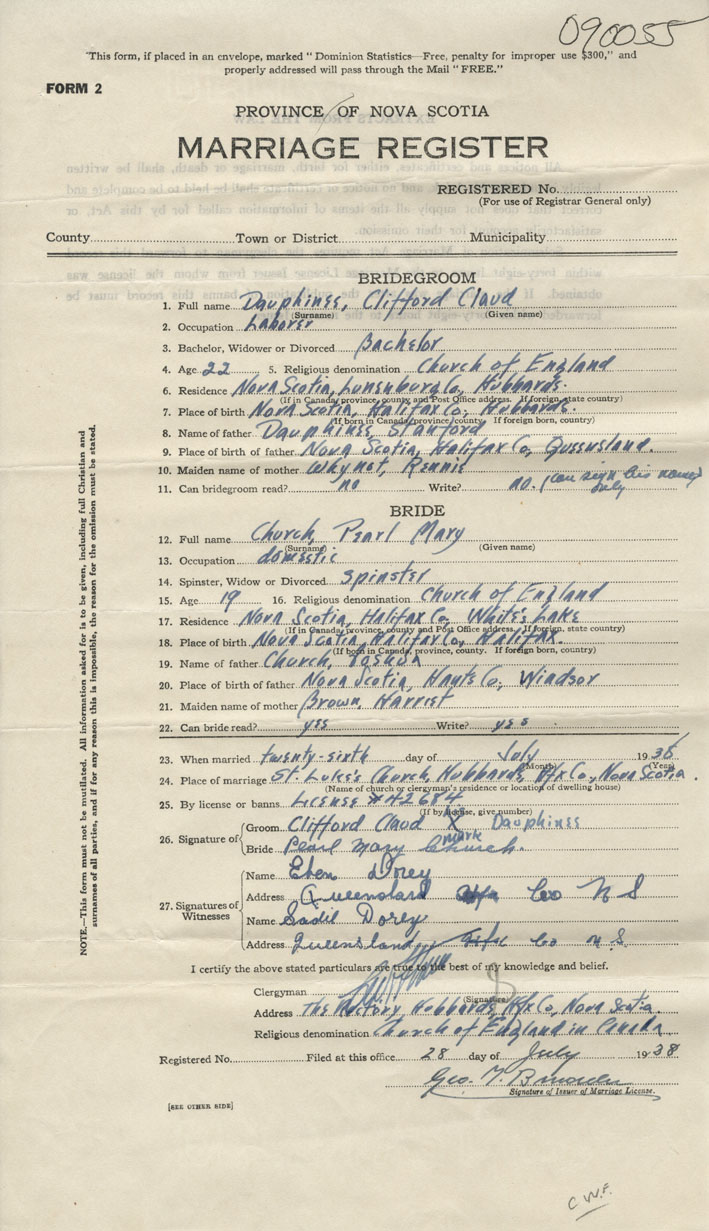 090055
"This form, if placed in an envelope, marked "Dominion Statistics—Free, penalty for improper use $300," and
properly addressed will pass through the Mail "FREE."
FORM 2
PROVINCE OF NOVA SCOTIA
MARRIAGE REGISTER
REGISTERED No.
(For use of Registrar General only)
County Town or District Municipality
BRIDEGROOM
1. Full name Dauphinee, Clifford Claud
(Surname) (Given name)
2. Occupation Laborer
3. Bachelor, Widower or Divorced Bachelor
4. Age 22 5. Religious denomination Church of England
6. Residence Nova Scotia, Lunenburg Co, Hubbards.
(If in Canada, province, county and Post Office address. If foreign, state country)
7. Place of birth Nova Scotia, Halifax Co, Hubbards.
(If born in Canada, province, county. If foreign born, country)
8. Name of father Dauphinee, Stanford
9. Place of birth of father Nova Scotia, Halifax Co, Queensland.
10. Maiden name of mother Whynot, Rennie
11. Can bridegroom read? no Write? no. (can sign his name only
BRIDE
12. Full name Church, Pearl Mary
(Surname) (Given name)
13. Occupation domestic
14. Spinster, Widow or Divorced Spinster
15. Age 19 16. Religious denomination Church of England
17. Residence Nova Scotia, Halifax Co, White's Lake
(If in Canada, province, county and Post Office address. If foreign, state country)
18. Place of birth Nova Scotia, Halifax Co, Halifax.
(If born in Canada, province, county. If foreign born, country)
19. Name of father Church, Joshua
20. Place of birth of father Nova Scotia, Hants Co, Windsor
21. Maiden name of mother Brown, Harriet
22. Can bride read? yes Write? yes
23. When married twenty-sixth day of July 1938
(Month) (Year)
24. Place of marriage St. Luke's Church, Hubbards, Hfx Co., Nova Scotia.
(Name of church or clergyman's residence or location of dwelling house)
25. By license or banns License #42684
(If by license, give number)
26. Signature of Groom Clifford Claud X Dauphinee
mark
Bride Pearl Mary Church.
27. Signatures of Witnesses
Name Eben Dorey
Address Queensland Co N S
Name Sadie Dorey
Address Queensland Hfx Co N S.
I certify the above stated particulars are true to the best of my knowledge and belief.
Clergyman
(Signature)
Address The Rectory, Hubbards, Hfx Co, Nova Scotia.
Religious denomination Church of England in Canada
Registered No. Filed at this office 28 day of July 1938
Geo. T.
Signature of Issuer of Marriage License.
[SEE OTHER SIDE]
C.W.F.
NOTE.—This form must not be mutilated. All information asked for is to be given, including full Christian and
surnames of all parties, and if for any reason this is impossible, the reason for the omission must be stated.